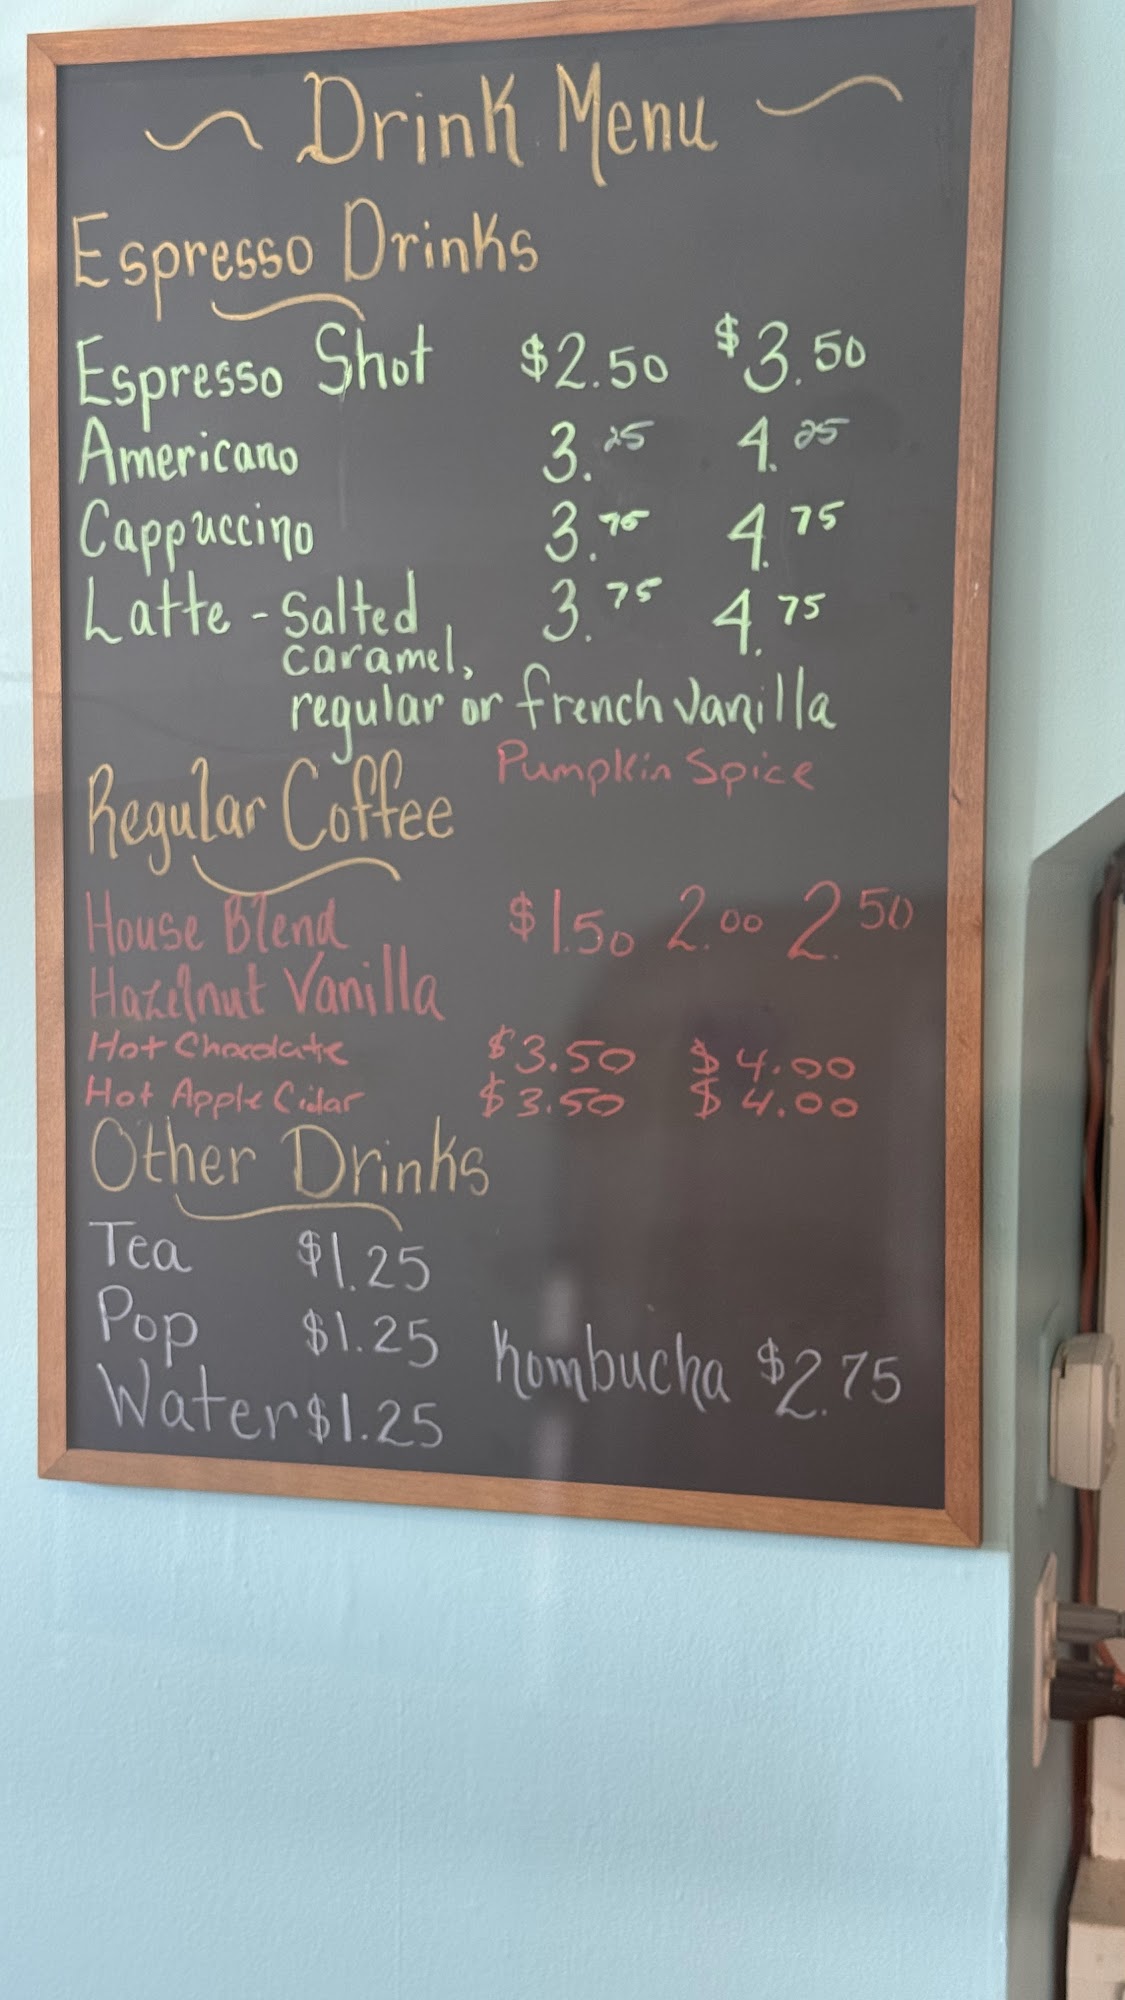 Drink Menu
Espresso Drinks
Espresso Shot $2.50 $3.50
Americano 3.25 4.25
Cappuccino 3.75 4.75
Latte - Salted 3.75 4.75
caramel,
regular or french vanilla
Pumpkin Spice
Regular Coffee
House Blend $1.50 2.00 2.50
Hazelnut Vanilla
Hot Chocolate $3.50 $4.00
Hot Apple Cidar $3.50 $4.00
Other Drinks
Tea $1.25
Pop $1.25
Kombucha $2.75
Water $1.25